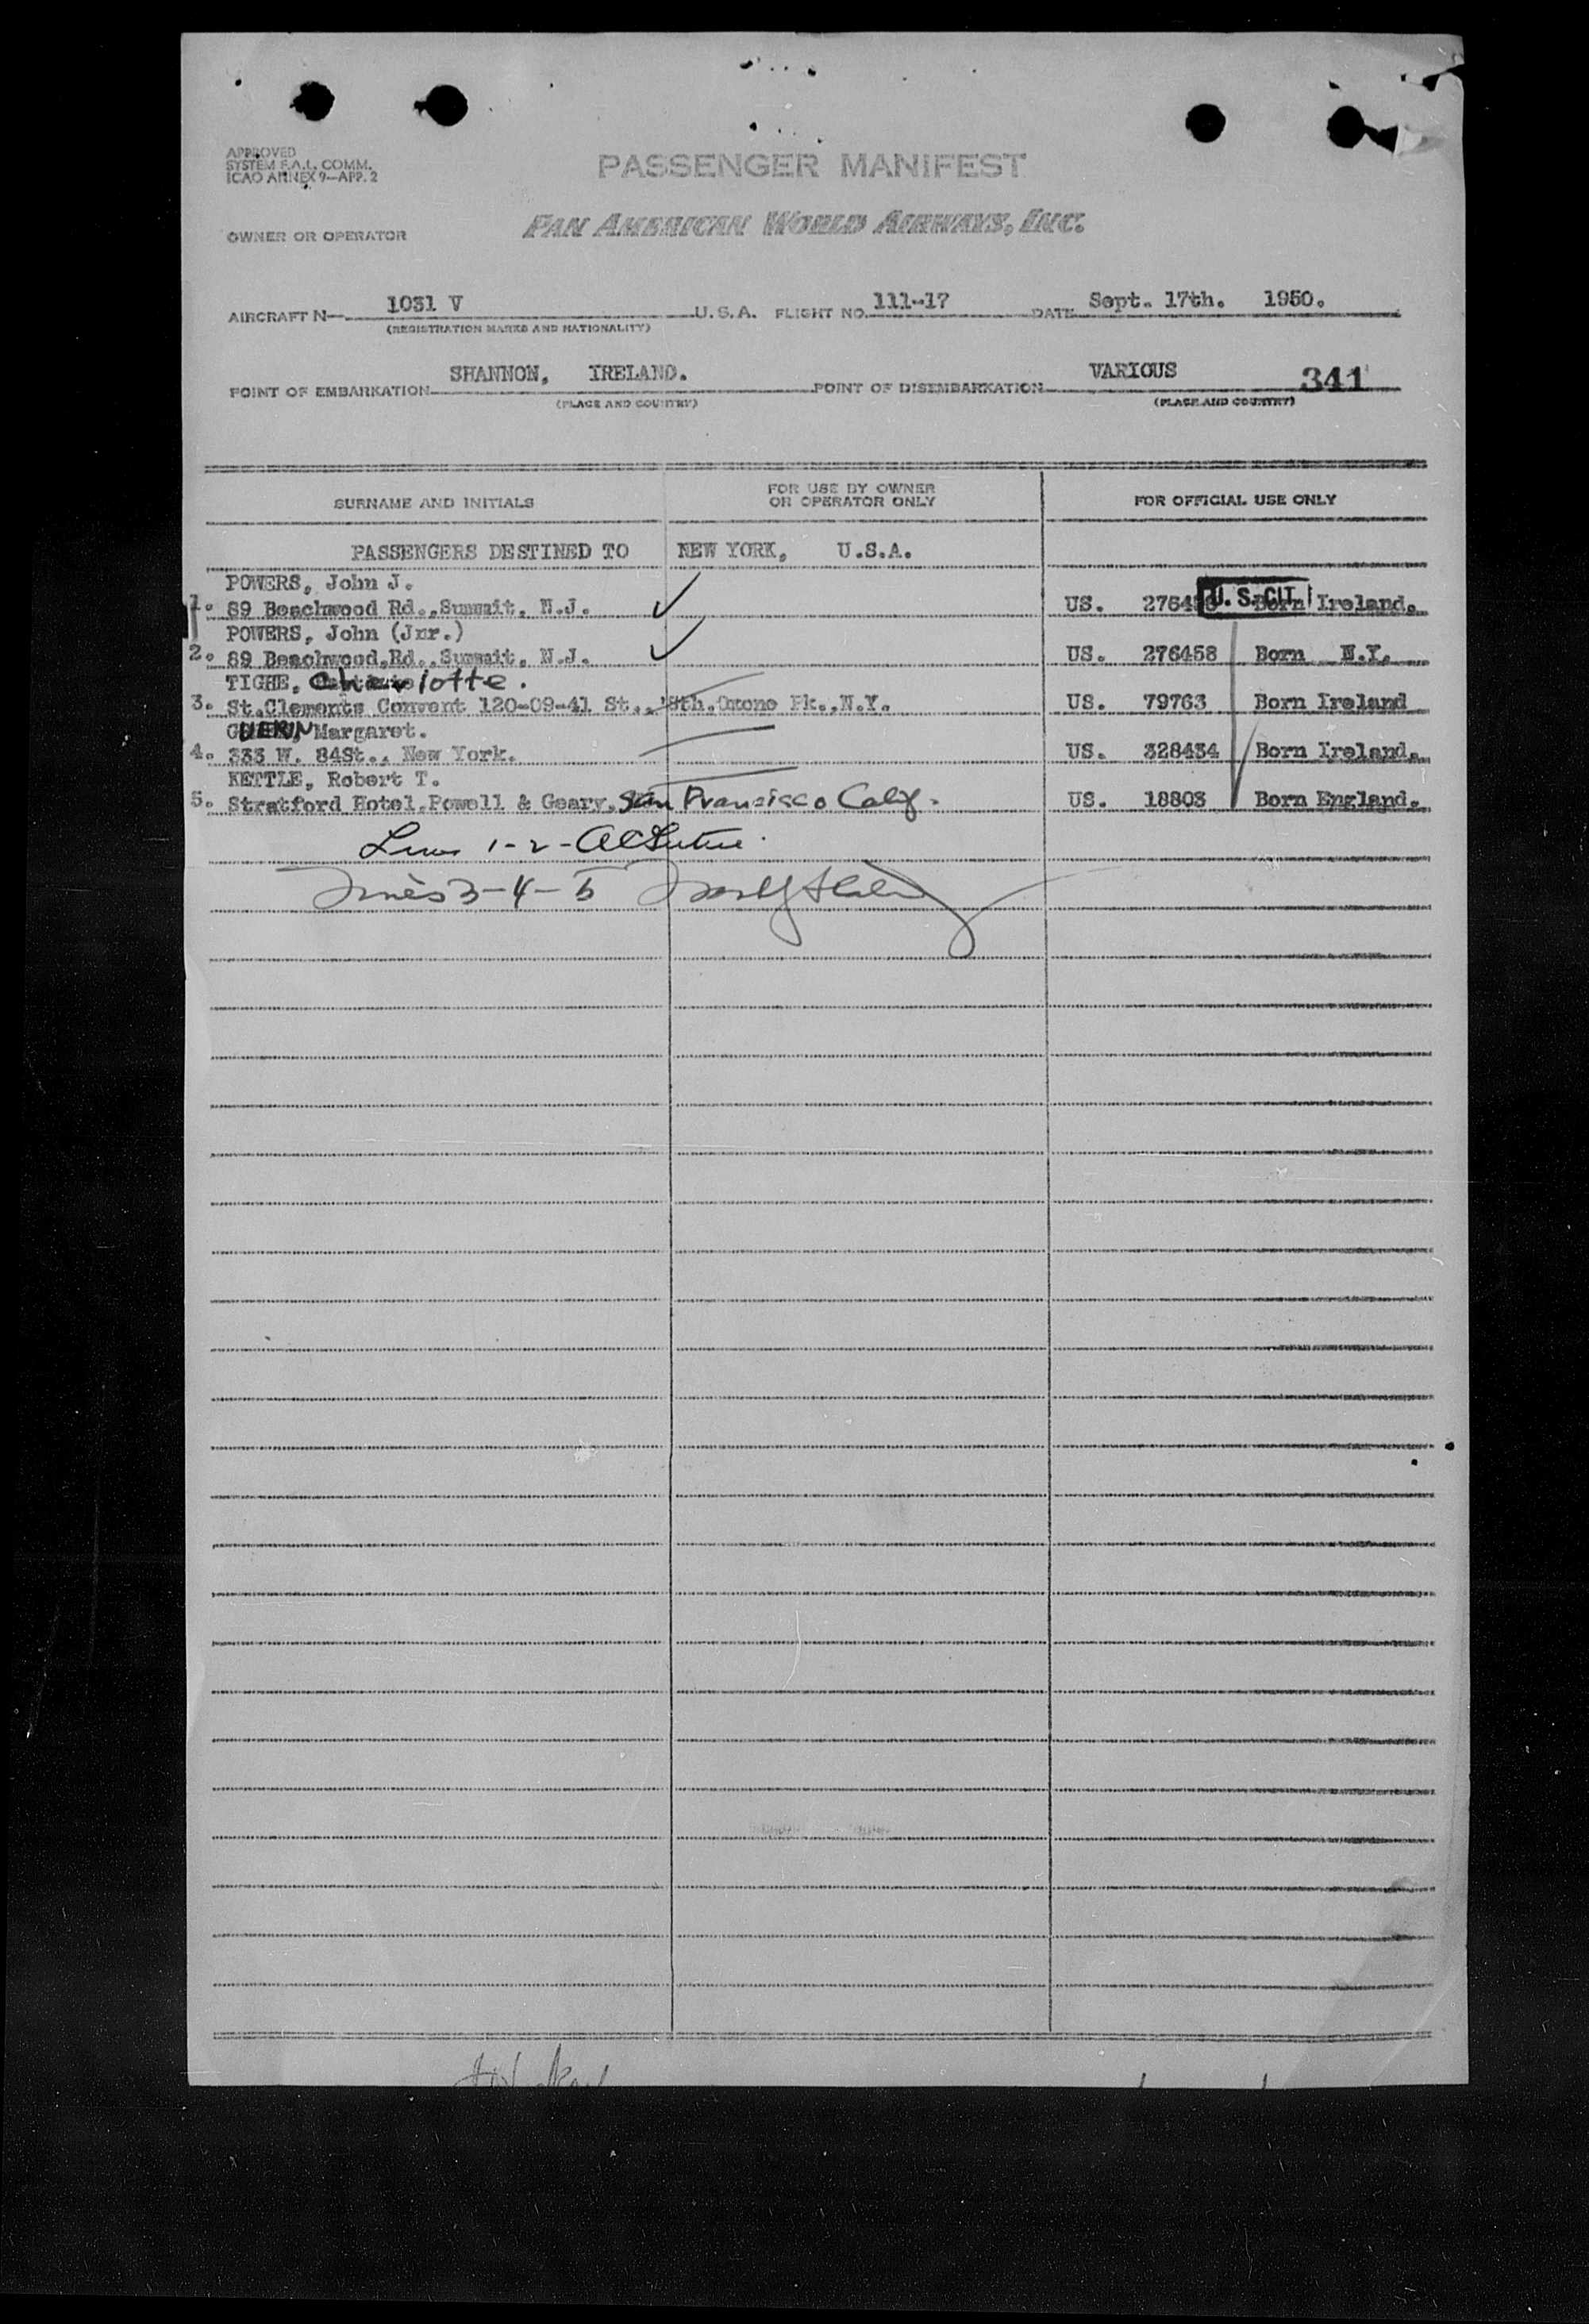 APPROVED
SYSTEM F.A.L. COMM.
ICAO ANNEX 9—APP. 2
PASSENGER MANIFEST
OWNER OR OPERATOR PAN AMERICAN WORLD AIRWAYS, INC.
AIRCRAFT N— 1031 V U.S.A. FLIGHT NO. 111-17 DATE Sept. 17th. 1950.
(REGISTRATION MARKS AND NATIONALITY)
POINT OF EMBARKATION SHANNON, IRELAND. POINT OF DISEMBARKATION VARIOUS 341
(PLACE AND COUNTRY) (PLACE AND COUNTRY)
SURNAME AND INITIALS FOR USE BY OWNER OR OPERATOR ONLY FOR OFFICIAL USE ONLY
PASSENGERS DESTINED TO NEW YORK, U.S.A.
POWERS, John J.
1. 89 Beachwood Rd.,Summit, N.J. US. 2764 U. S. CIT. Born Ireland.
POWERS, John (Jnr.)
2. 89 Beachwood,Rd.,Summit, N.J. US. 276458 Born N.Y.
TIGHE, Charlotte.
3. St.Clements Convent 120-09-41 St., Sth.Ozone Pk.,N.Y. US. 79763 Born Ireland
GUERIN, Margaret.
4. 333 W. 84St., New York. US. 328434 Born Ireland.
KETTLE, Robert T.
5. Stratford Hotel,Powell & Geary, San Francisco Calif. US. 18803 Born England.
Lines 1-2-
Lines 3-4-5